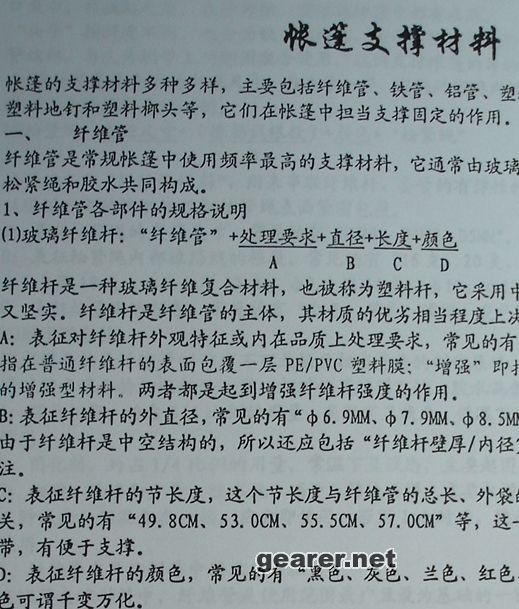 帐篷支撑材料
帐篷的支撑材料多种多样，主要包括纤维管、铁管、铝管、塑
塑料地钉和塑料榔头等，它们在帐篷中担当支撑固定的作用．
一、 纤维管
纤维管是常规帐篷中使用频率最高的支撑材料，它通常由玻璃
松紧绳和胶水共同构成。
1、纤维管各部件的规格说明
(1)玻璃纤维杆：“纤维管”+处理要求+直径+长度+颜色
A B C D
纤维杆是一种玻璃纤维复合材料，也被称为塑料杆，它采用中
又坚实．纤维杆是纤维管的主体，其材质的优劣相当程度上决
A：表征对纤维杆外观特征或内在品质上处理要求，常见的有
指在普通纤维杆的表面包覆一层 PE/PVC 塑料膜；“增强”即指
的增强型材料．两者都是起到增强纤维杆强度的作用．
B：表征纤维杆的外直径，常见的有“φ6.9MM、φ7.9MM、φ8.5MM
由于纤维杆是中空结构的，所以还应包括“纤维杆壁厚/内径”
注．
C：表征纤维杆的节长度，这个节长度与纤维管的总长、外袋的
关，常见的有“49.8CM、53.0CM、55.5CM、57.0CM”等，这一
带，有便于支撑．
D：表征纤维杆的颜色，常见的有“黑色、灰色、兰色、红色
色可谓千变万化．
gearer.net